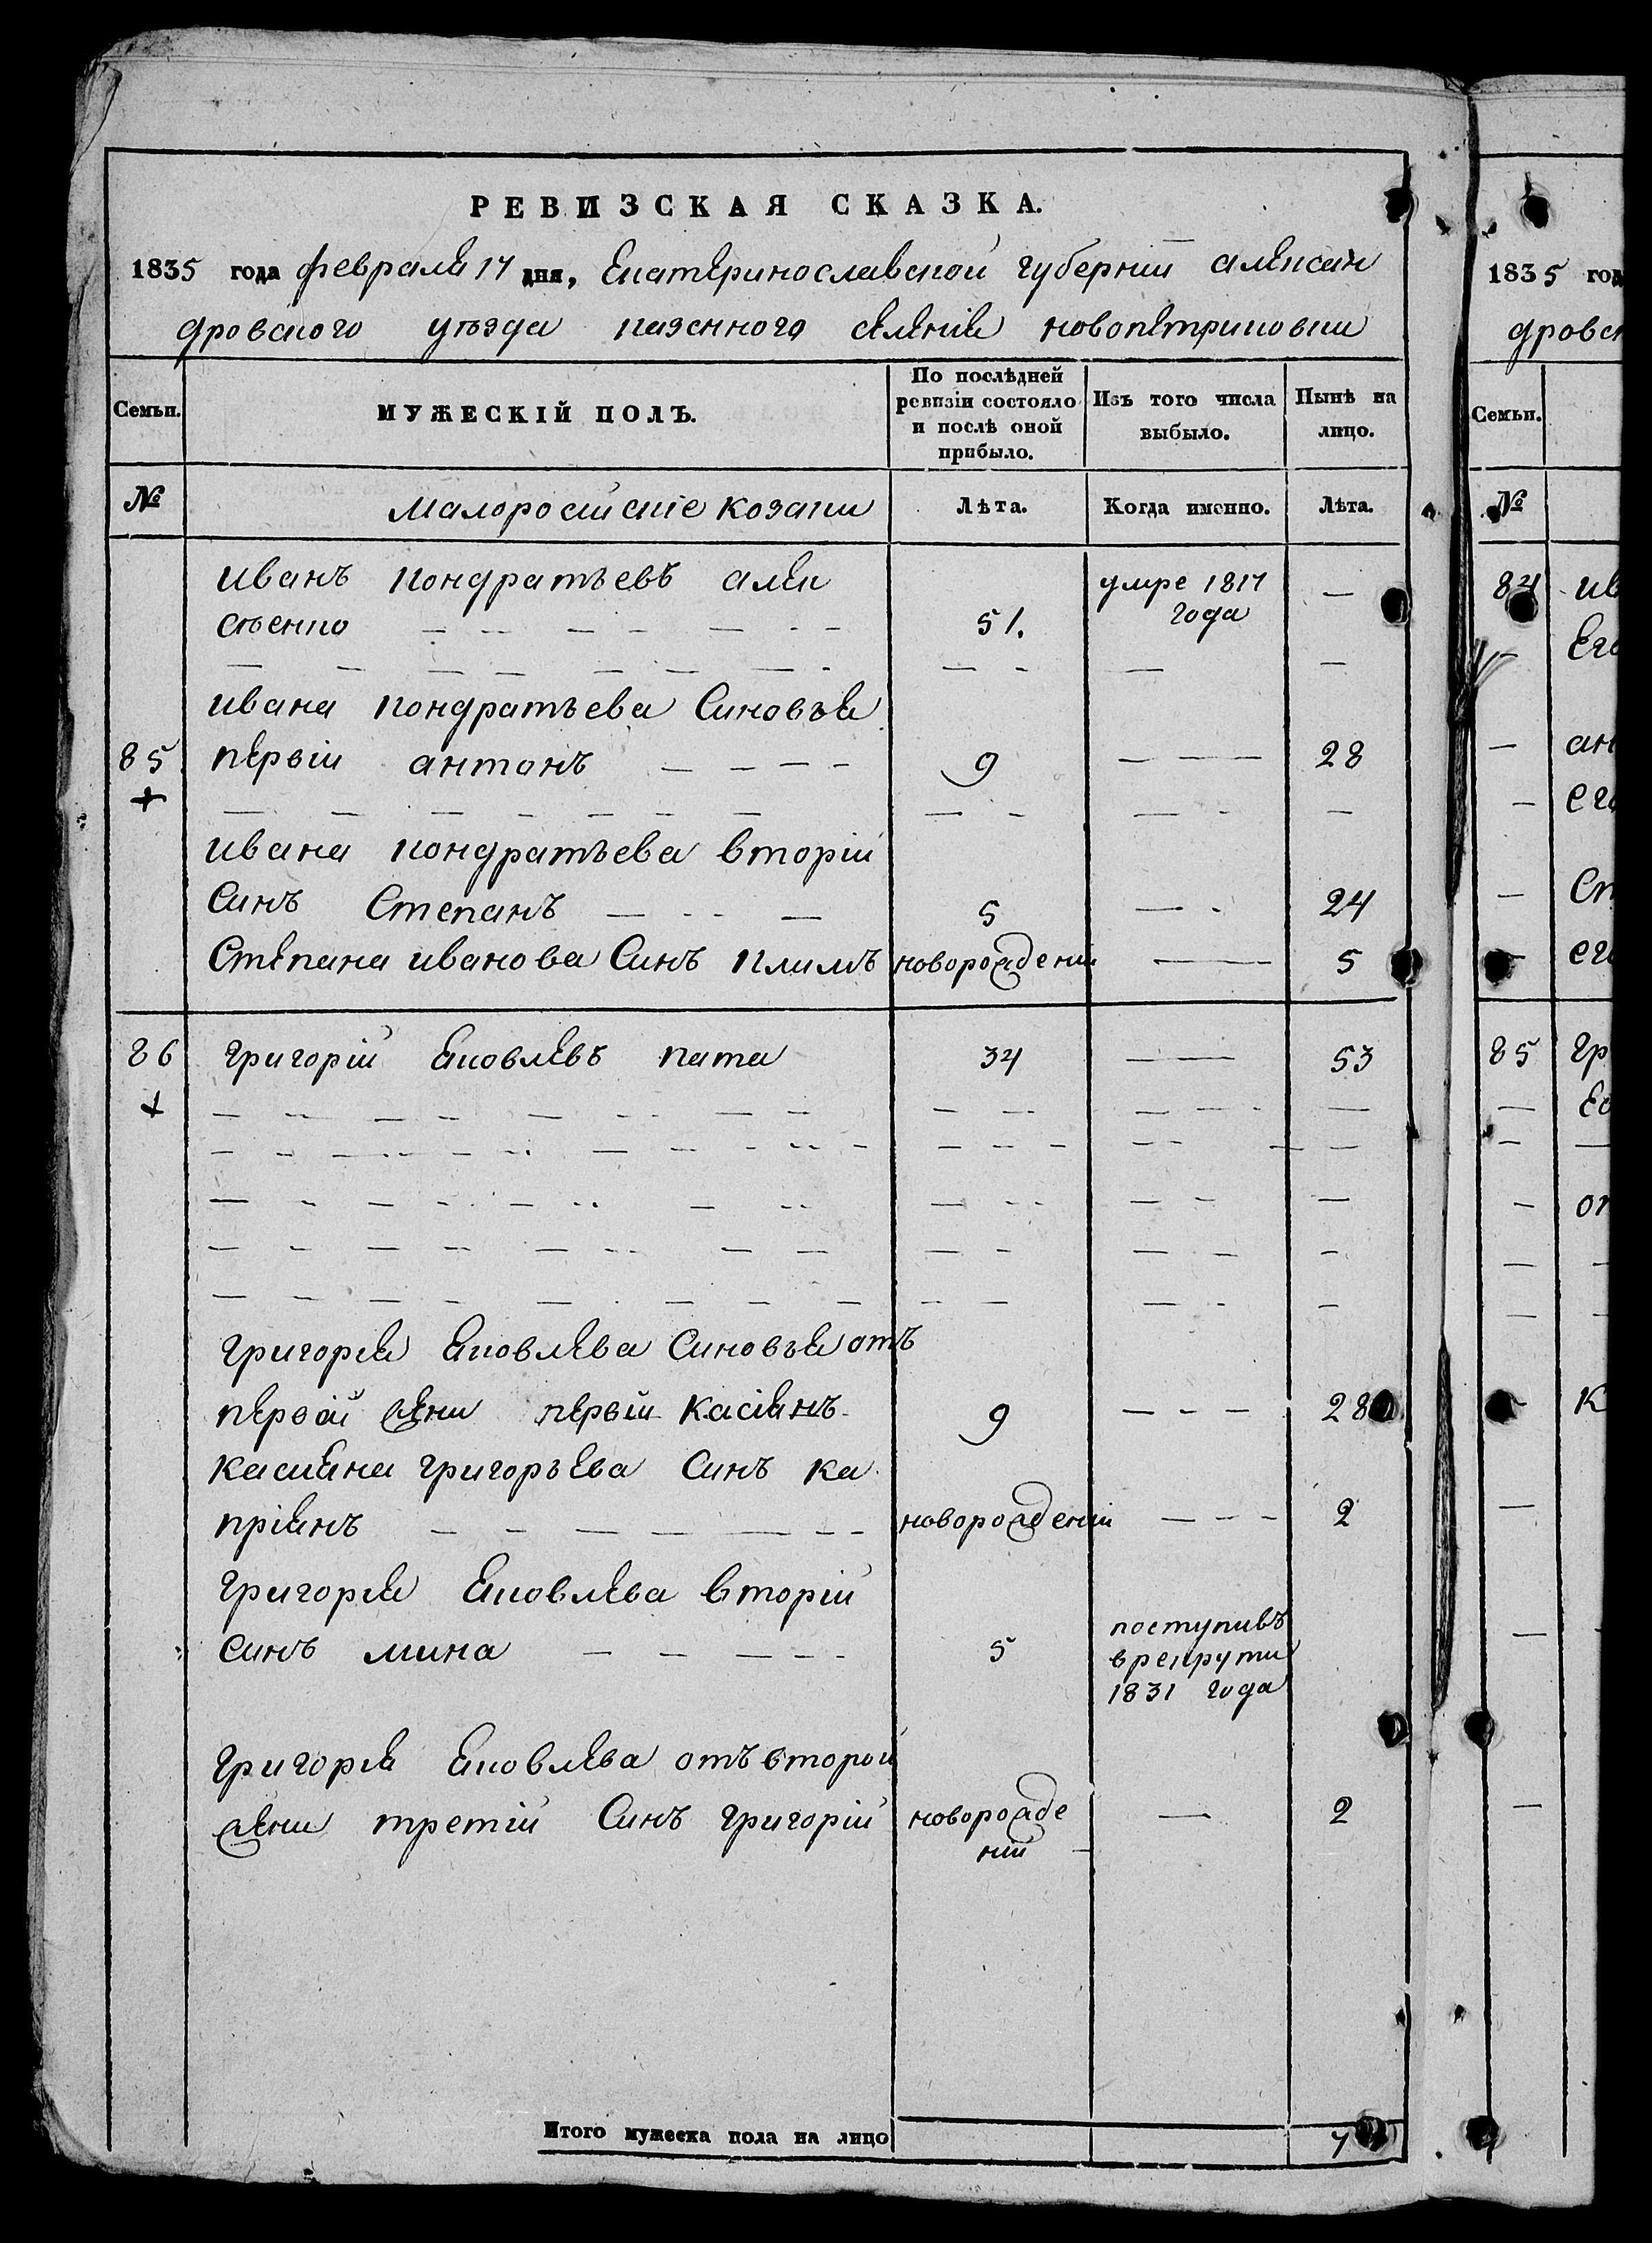 РЕВИЗСКАЯ СКАЗКА.
1835 года февраля 17 дня, Екатеринославской губернїи александ
ровского уѣзда казенного селенїя новопетриковки
Семьи.
МУЖЕСКІЙ ПОЛЪ.
По послѣдней ревизіи состояло и послѣ оной прибыло.
Изъ того числа выбыло.
Нынѣ на лицо.
№
малоросийскіе козаки
Лѣта.
Когда именно.
Лѣта.
иванъ кондратьевъ алек
сѣенко 51. умре 1817 года —
ивана кондратьева синовья
85 первій антонъ 9 28
ивана кондратьева вторій
синъ Степанъ 5 24
Степана иванова Синъ климъ новорожденій 5
86 григорій яковлевъ ката 34 53
григорія яковлева синовья отъ
первой жени первій касіянъ 9 28
касияна григорьева синъ ка
пріянъ новорожденій 2
григорія яковлева вторій
синъ мина 5 поступивъ
в рекрути
1831 года
григорія яковлева отъ второй
жени третій Синъ григорій новорожде 2
ній
Итого мужеска пола на лицо 7
1835 год
дровск
Семьи.
№
84 ив
Его
ан
его
Ст
его
85 гр
Ео
от
К